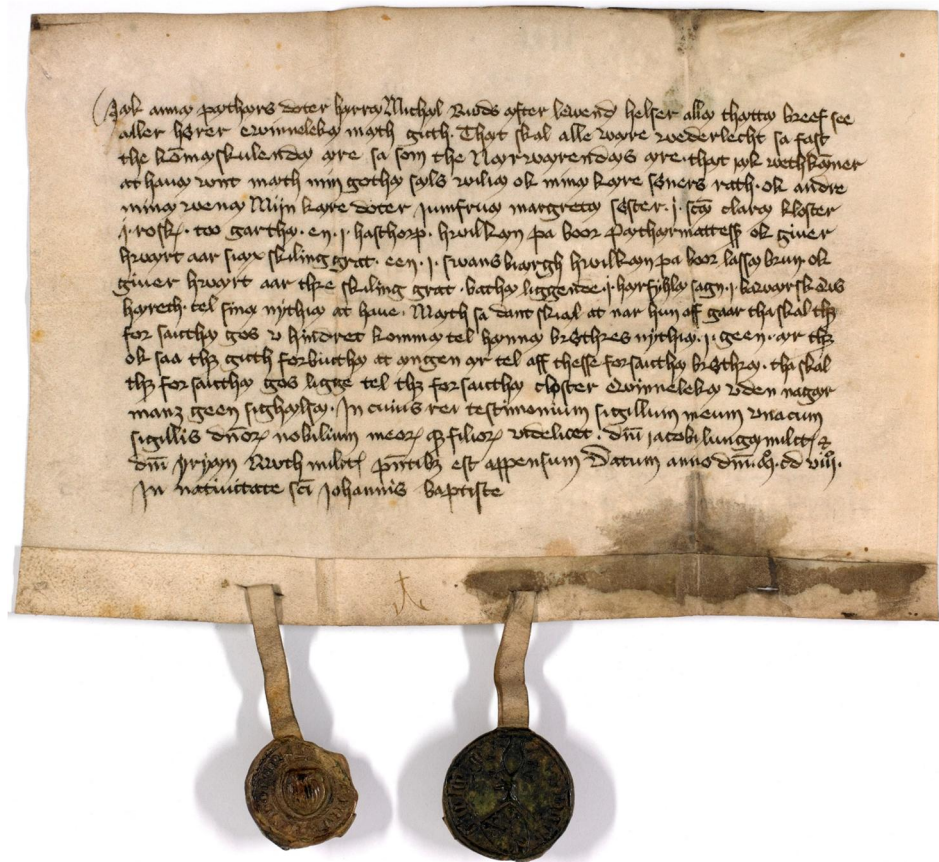 Jak anna pæthers doter hærra Michæl Ruds æfter lewend helser alla thætta breef see
æller hører ewinneleka mæth guth. Thæt skal alle være vederlecht sa fast
the kōmaskulende ære sa som the Nærwærendes ære. thæt jak vethkæner
at hava vnt mæth min gotha sæls vilia ok mina kære søners rath. ok andre
mina vena Mijn kære doter iumfrua margreta søster. i. scā clara kloster
i. rosk. too gartha. en. i. hasthorp. hwilkæn pa boor Pæthærmattess ok giver
hwært aar siax skiling grat. een. i. swansbiærgh hwilkæn pa boor lasse brun ok
giver hwært aar thre skiling grat. batha liggende. i. hærfyhlæ sogn. i. biwærskøus
hæreth. tel sina nythia at have. Mæth sa dant skial at nar hun aff gaar tha skal thz
for saictha gos v hindret komma tel hænna brøthres nythia. i geen. ær thz
ok saa thz guth forbiutha at ængen ær tel aff thesse forsaictha brøthra. tha skal
thz for saictha gos ligge tel thz forsaictha closter ewinneleka vden nagær
manz geen sighælsa. In cuius rei testimonium sigillum meum vnacum
sigillis dn̄oꝝ nobilium meoꝝ filioꝝ videlicet. dn̄i iacobi lunga milit &
dn̄i yriyan Ruth milit pn̄tibz est appensum Datum anno dn̄i. m. cd viii.
In natiuitate sc̄i Johannis baptiste